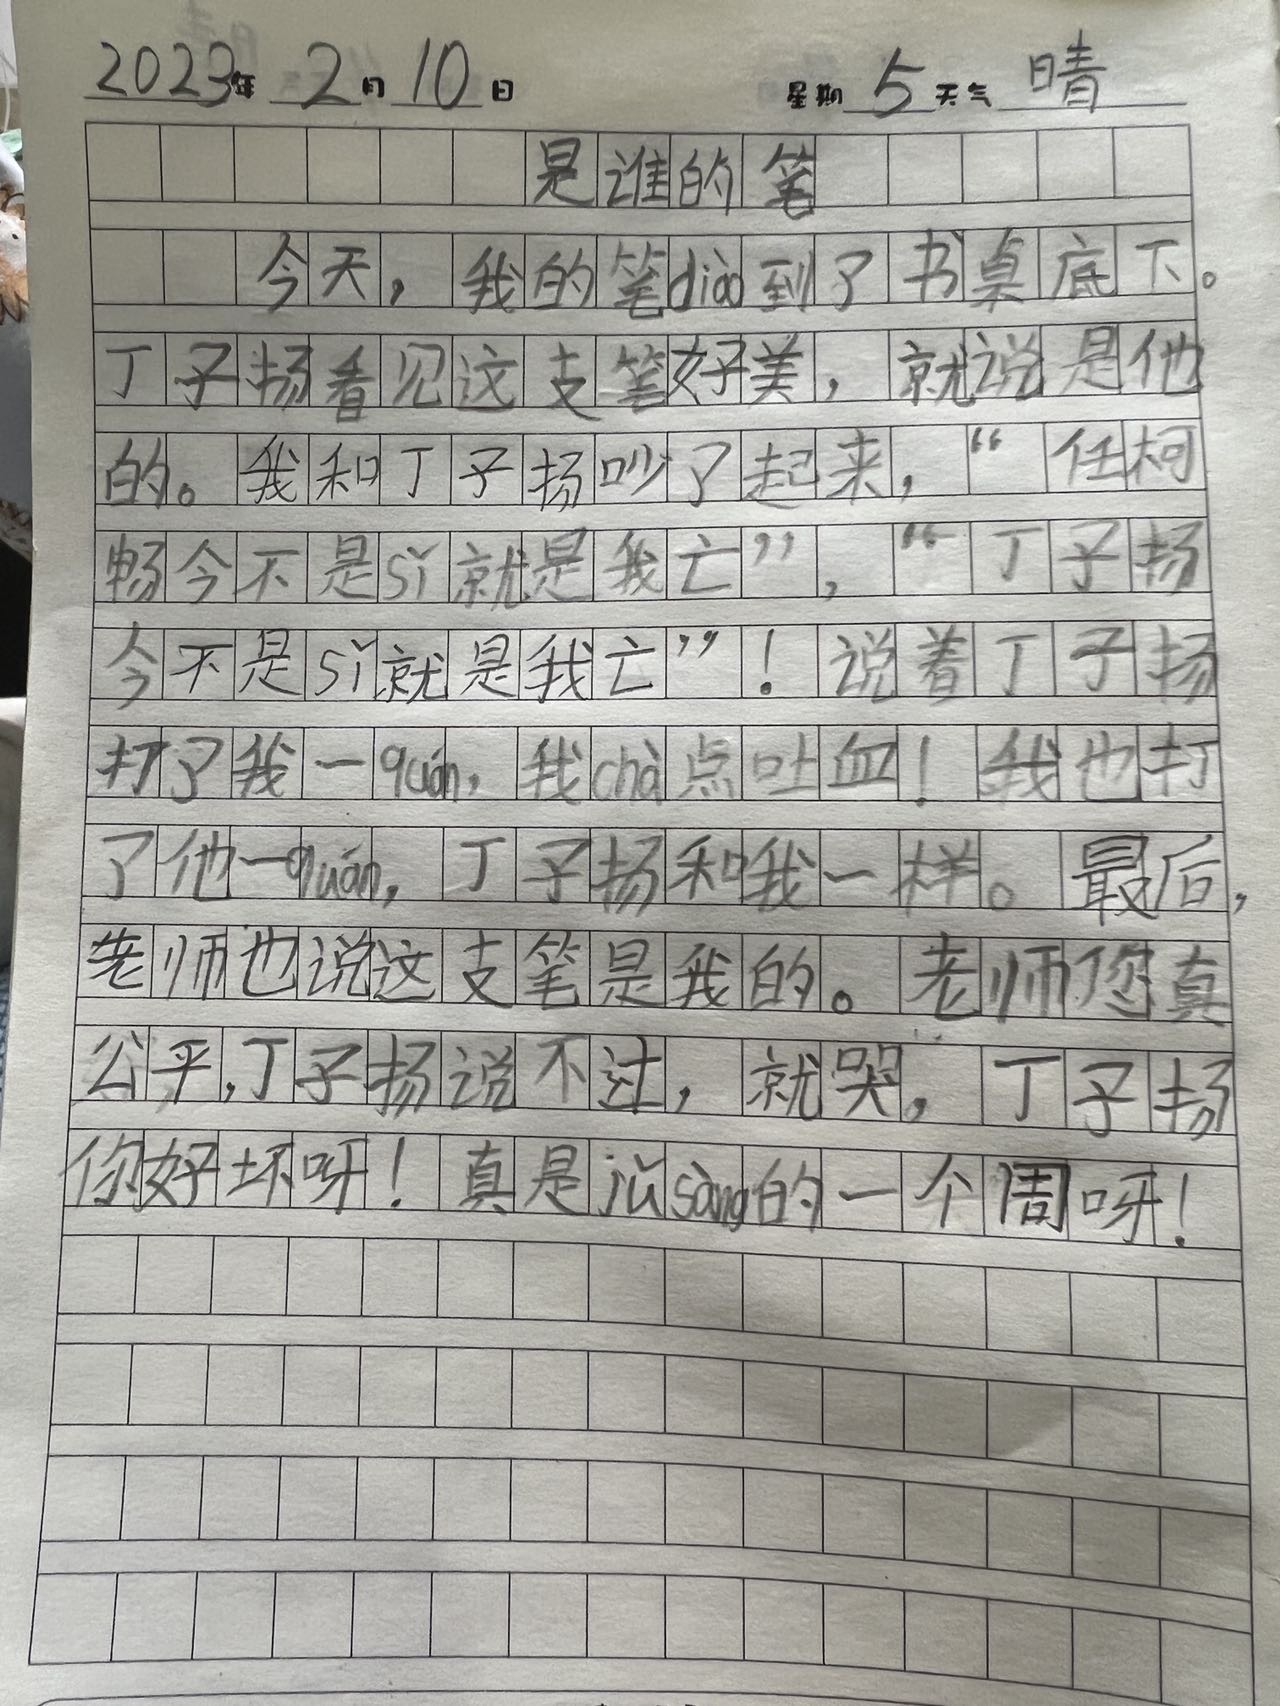 2023年 2月 10日 星期 5 天气 晴
是谁的笔
今天，我的笔diào到了书桌底下。
丁子扬看见这支笔好美，就说是他
的。我和丁子扬吵了起来，“任柯
畅今不是sǐ就是我亡”，“丁子扬
今不是sǐ就是我亡”！说着丁子扬
打了我一quán，我chà点吐血！我也打
了他一quán，丁子扬和我一样。最后，
老师也说这支笔是我的。老师您真
公平，丁子扬说不过，就哭，丁子扬
你好坏呀！真是jǔ sàng的一个周呀！